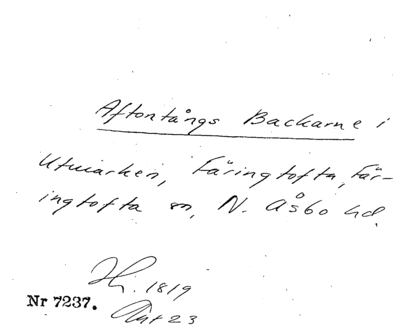 Aftontångs Backarne i
Utmarken, Färingtofta, Fär-
ingtofta sn, N. Åsbo hd.
Hi. 1819
Nr 7237.
Akt 23